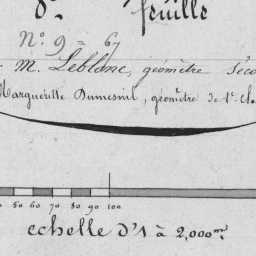 8e. feuille
No. 9 à 67
M. Leblanc, géomètre Seco
Margueritte Dumesnil, géomètre de 1e. cla
50 60 70 80 90 100
echelle d'1 à 2,000me